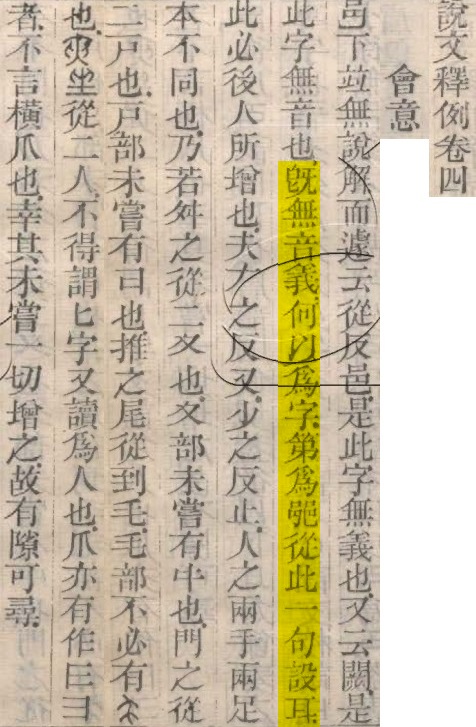 說文釋例卷四
會意
邑下竝無說解而遽云從反邑是此字無義也又云闕是
此字無音也旣無音義何以爲字第爲𨛜從此一句設耳
此必後人所增也夫𠂇之反又少之反止人之兩手兩足
本不同也乃若舛之從二夊也夊部未嘗有㐄也門之從
二戶也戶部未嘗有也推之尾從到毛毛部不必有
也坐從二人不得謂匕字又讀爲人也爪亦有作
者不言橫爪也幸其未嘗一切增之故有隙可尋